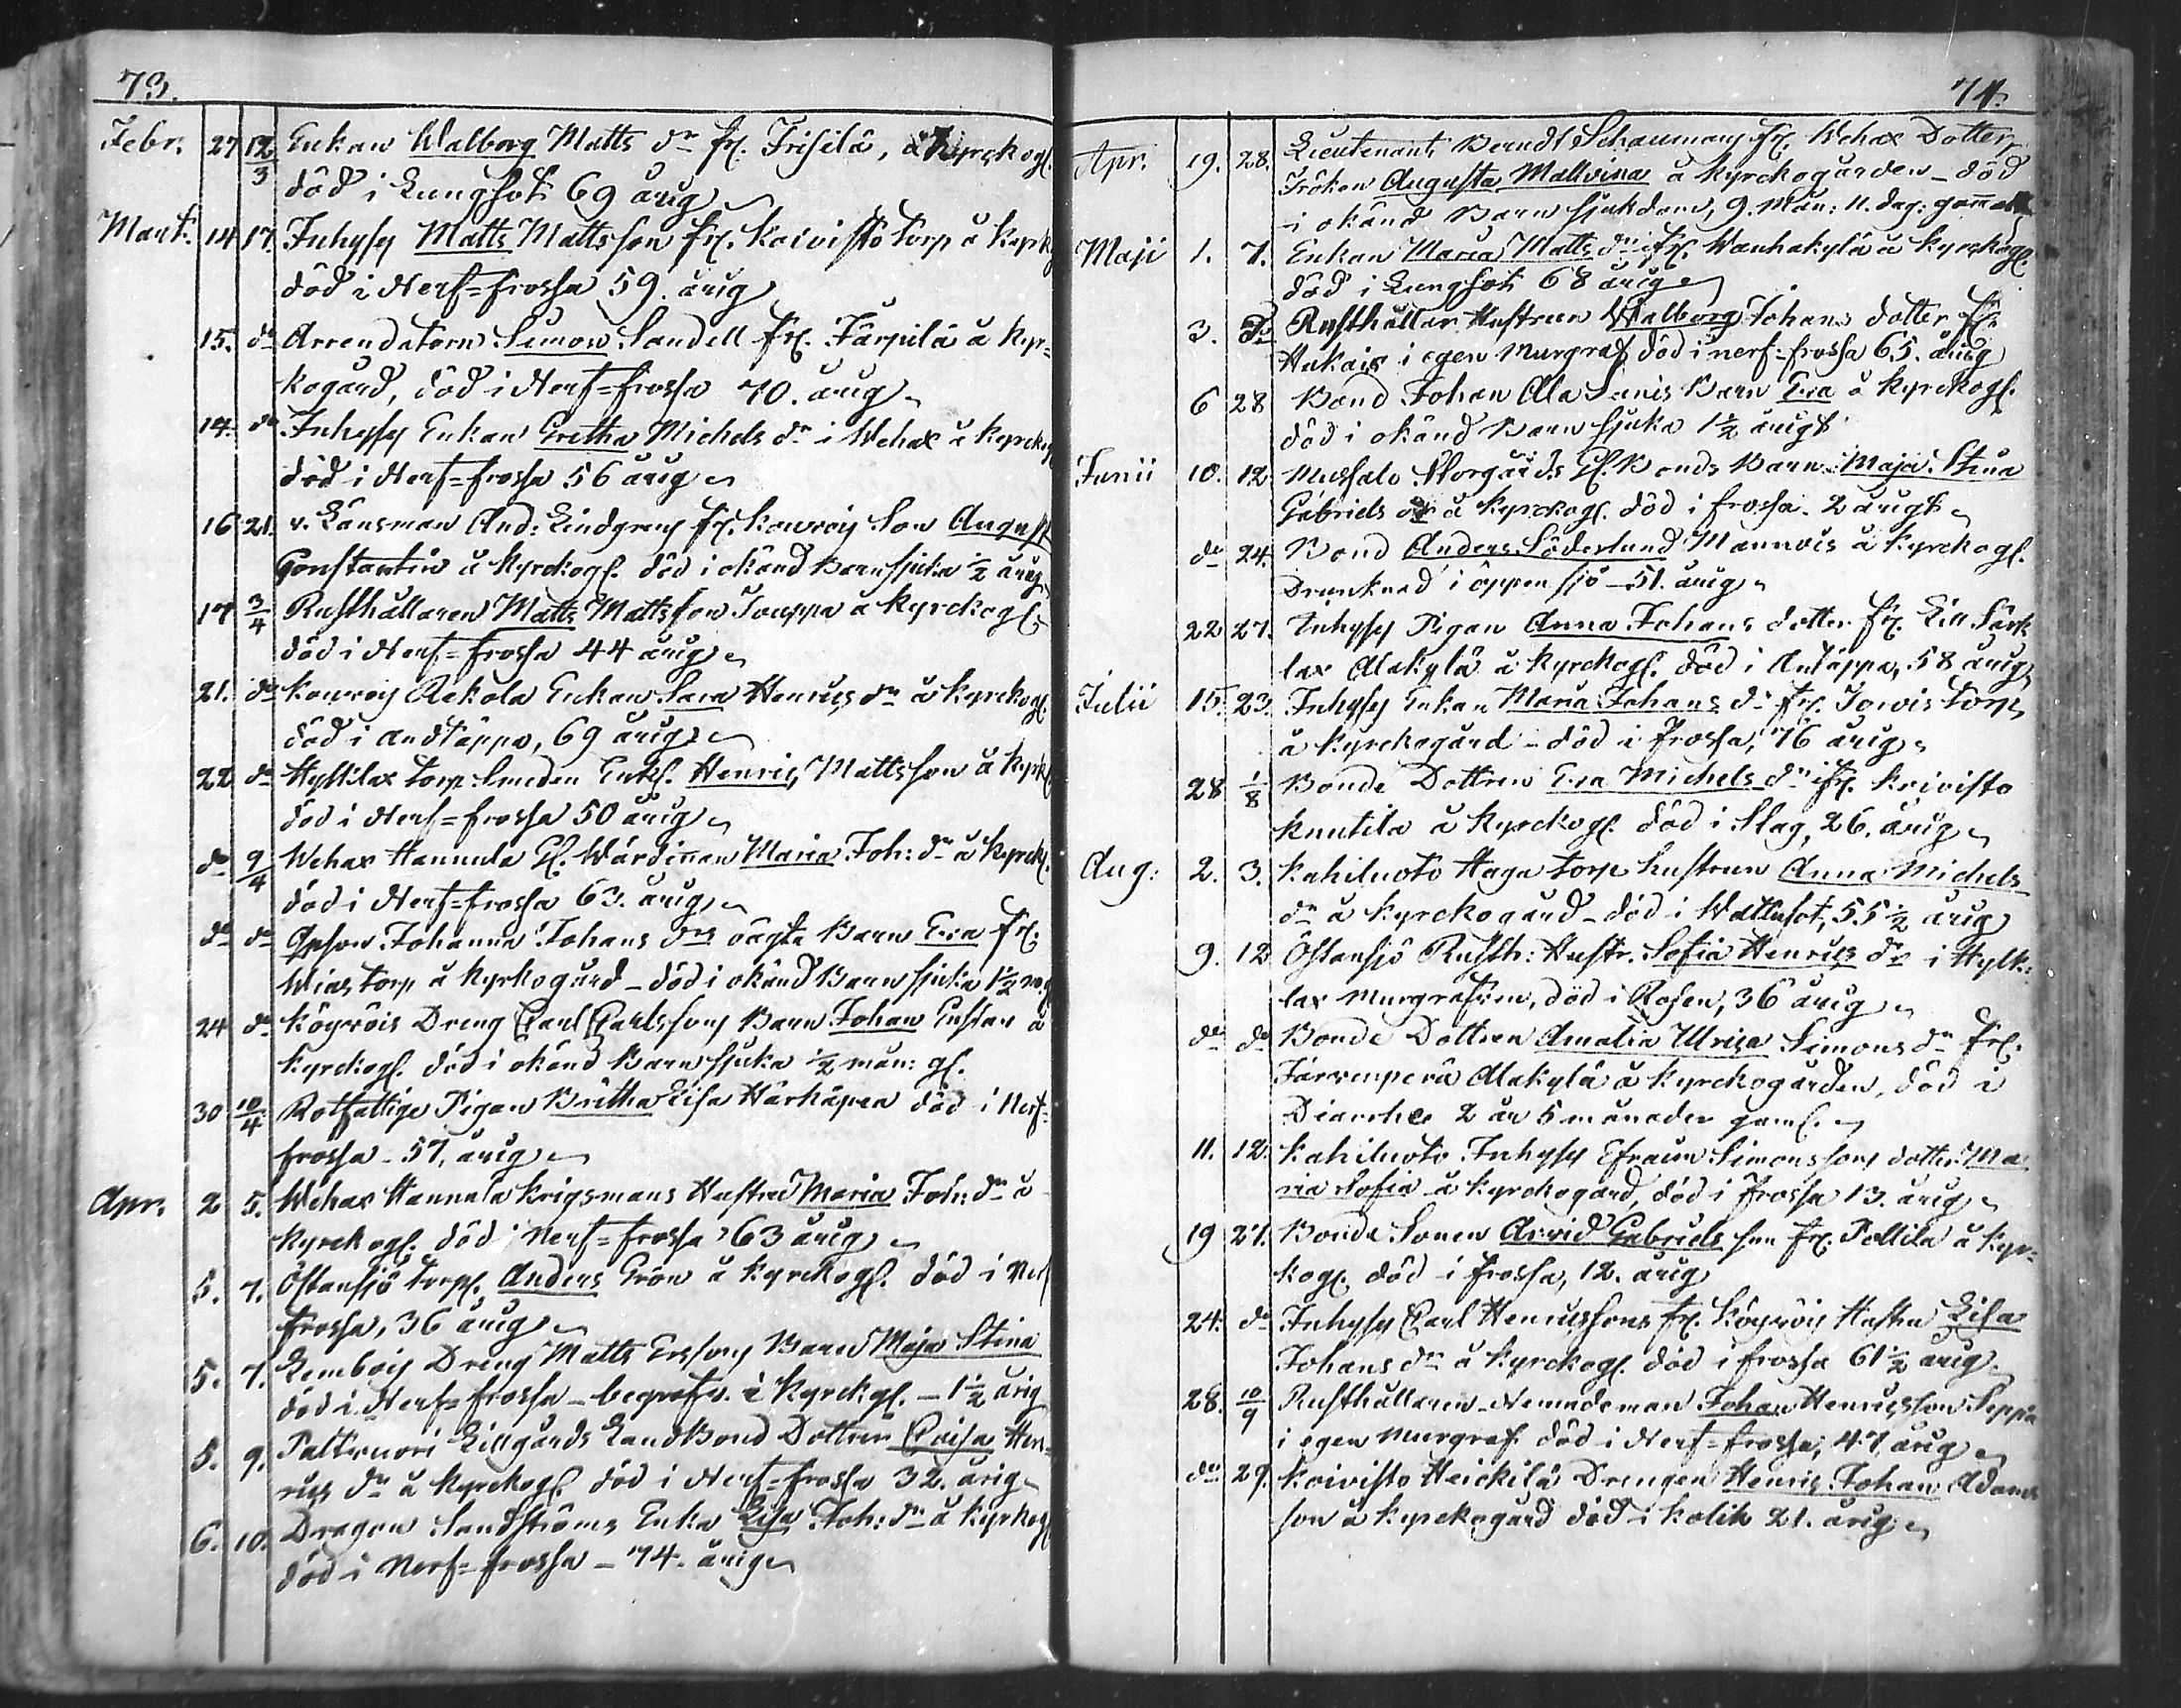 73.
Febr. 27 12/3 Enkan Walborg Matts dr fr. Frisilä, å Kyrckog.
död i Lungsot 69 årig
Mart. 14 17. Inhyses Matts Mattsson fr. Koivisto torp å Kyrk
död i Nerf=frossa 59. årig
15. do Arrendatorn Simon Sandell fr. Järpilä å Kyr=
kogård, död i Nerf=frossa 70. årig
14. do Inhyses Enkan Gretha Michels dr i Wehax å Kyrckog
död i Nerf=frossa 56 årig
16 21. v. Länsman And: Lindgrens fr. Kourois Son August
Constantin å Kyrckog. död i okänd Barnsjuka 1/2 årig
17 3/4 Rusthållaren Matts Mattsson Jouppa å Kyrckog.
död i Nerf=frossa 44 årig
21. do Kourois Rekola Enkan Sara Henrics dr å Kyrckog.
död i andtäppa, 69 årig
22 do Hystilax torp Smeden Enkl. Henric Mattsson å Kyrk
död i Nerf=frossa 50 årig
do 9/4 Wehax Hannula Gl. Wärdinnan Maria Joh: dr å Kyrck.
död i Nerf=frossa 63. årig
do do Qpson Johanna Johans drs oägta Barn Eva fr.
Wias torp å Kyrkogård - död i okänd Barnsjuka 1 1/2
24 do Köyröis Dreng Carl Carlssons Barn Johan Gustav å
Kyrckog. död i okänd Barnsjuka 1/2 mån: gl.
30 10/4 Rotfattige Pigan Britha Lisa Härkäpea död i Nerf=
frossa - 57, årig
Apr. 2 5. Wehax Hannula Krigsmans Hustru Maria Joh: dr å
Kyrckog. död i Nerf=frossa 63 årig
5. 7. Östansjö torp. Anders Grön å Kyrckog. död i Nerf
frossa, 36 årig
5. 7. Lembois Dreng Matts Erssons Barn Maja Stina
död i Nerf=frossa - begrafv. i Kyrckg. - 1 1/2 årig
5. 9. Pattwuori Lillgårds Landbond Dottren Caisa Hen=
rics dr å Kyrckog. död i Nerf=frossa 32. årig
6. 10. Dragon Sandströms Enka Lisa Joh: dr å Kyrkog
död i Nerf=frossa - 74. årig
74.
Apr. 19. 28. Lieutenant Berndt Schaumans fr. Wehax Dotter,
Fröken Augusta Mallvina å Kyrckogården - död
i okänd Barn sjukdom, 9. Mån: 11. dag. gammal
Maji 1. 7. Enkan Maria Matts dr fr. Wanhakylä å Kyrckog.
död i Lungsot 68 årig
3. do Rusthållar Hustrun Walborg Johans dotter fr.
Hakais i egen Murgraf död i nerf=frossa 65. årig
6 28 Bond Johan Ala Sanis Barn Eva å Kyrckog.
död i okänd Barnsjuka 1 1/2 årigt
Junii 10. 12. Mussalo Storgårds Gl. Bonds Barn Maja Stina
Gabriels dr å Kyrckog. död i frossa. 2 årigt
do 24. Bond Anders Söderlund Mannois å Kyrckog.
Drunknad i öppen sjö - 51. årig
22 27. Inhyses Pigan Anna Johans dotter fr. Lill Särk
lax Alakylä å Kyrckog. död i Antäppa, 58 årig
Julii 15. 23. Inhyses Enkan Maria Johans dr fr. Jorois torp
å Kyrckogård - död i frossa, 76 årig
28 1/8 Bonde Dottren Eva Michels dr fr. Koivisto
Knutila å Kyrckog. död i Slag, 26. årig
Aug: 2. 3. Kahiluoto Haga torp hustrun Anna Michels
dr å Kyrckogård - död i Wattusot, 55 1/2 årig
9. 12 Östansjö Rusth: Hustr. Sofia Henrics dr i Hylk:
lax Murgrafven, död i Rosen, 36 årig
do do Bonde Dottren Amalia Ulrica Simons dr fr.
Järvenperä Alakylä å Kyrckogården, död i
Diarrhee 2 år 5 månader gaml.
11. 12. Kahiluoto Inhyses Efraim Simonssons dotter Ma
ria Sofia å Kyrckogård, död i frossa 13. årig
19 27. Bonde Sonen Arvid Gabriels son fr. Pollila å Kyr=
kog. död i frossa, 12. årig
24. do Inhyses Carl Henricssons fr. Köyröis Hustru Lisa
Johans dr å Kyrckog. död i frossa 61 1/2 årig
28. 10/9 Rusthållaren Nemndeman Johan Henricsson Seppä
i egen Murgraf död i Nerf=frossa, 47 årig
do 29. Koivisto Heickilä Drengen Henric Johan Adams
son å Kyrckogård död i kolik 21. årig